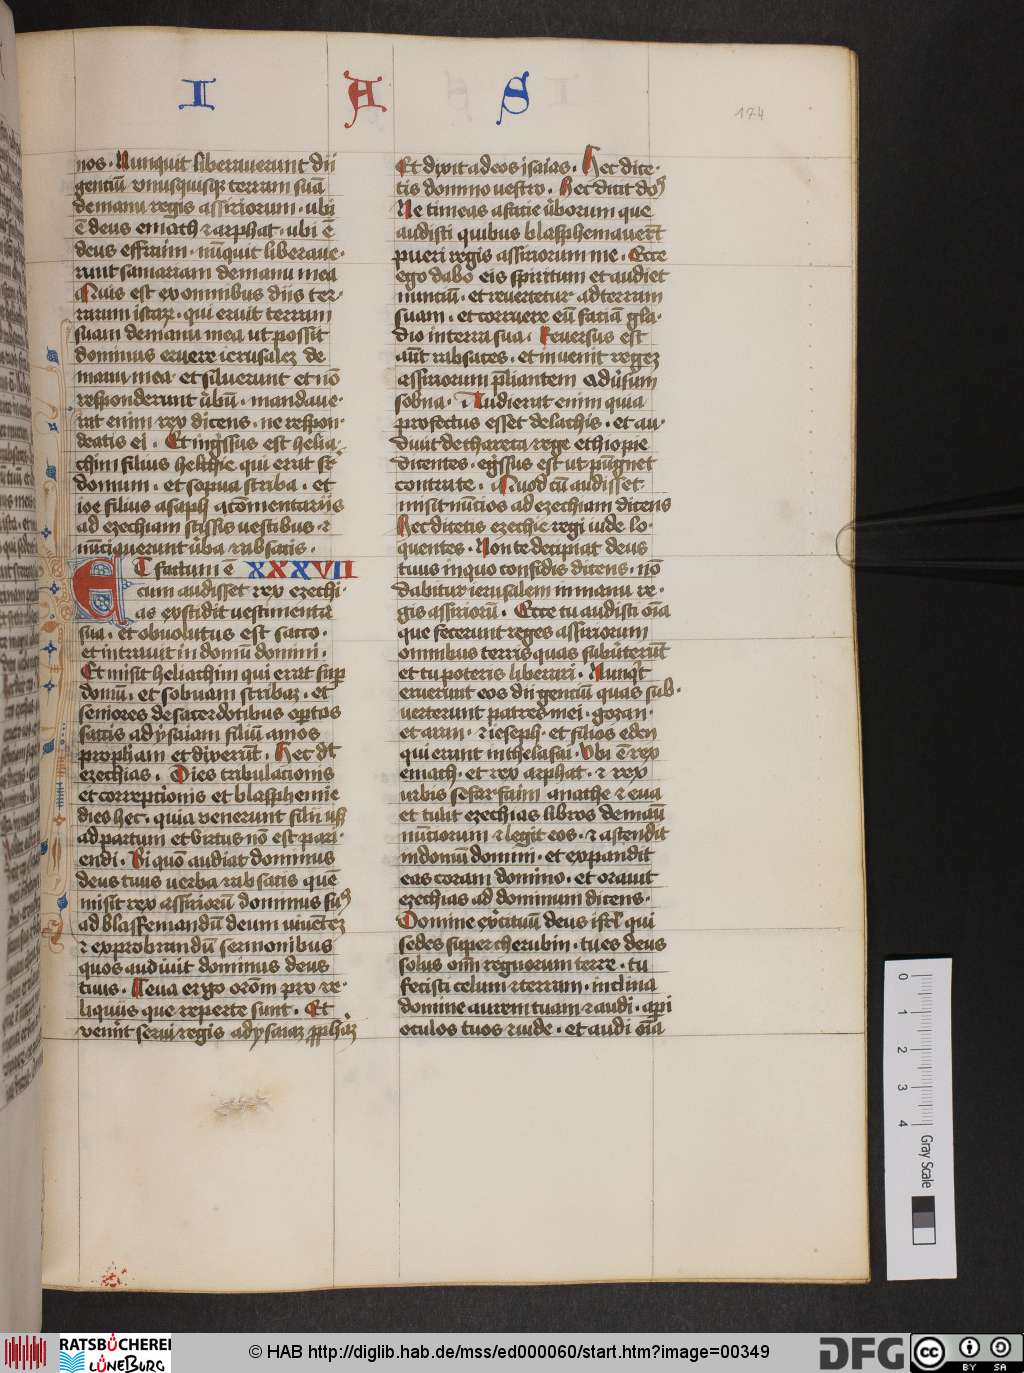 I A S
174
nos · Nunquit liberauerunt dii
gentiū vnusquisqꝫ terram suā
de manu regis assiriorum · ubi
ē deus emath ⁊ arphat · ubi ē
deus effraim · nūquit liberaue·
runt samariam de manu mea
Quis est ex omnibus diis ter·
rarum istarꝝ · qui eruit terram
suam de manu mea ut possit
dominus eruere ierusaleꝫ de
manu mea · et siluerunt et nō
responderunt ũbū · mandaue·
rat enim rex dicens · ne respon·
deatis ei · Et ingressus est helia·
chim filius helchie qui erat sr̄
domum · et sopna scriba · et
ioe filius asaph a cōmentariis
ad ezechiam scissis uestibus · ⁊
nūciauerunt ũba rabsacis ·
ET factum ē XXXVII
cum audisset rex ezechi·
as exscidit uestimenta
sua · et obuolutus est sacco ·
et intrauit in domū domini ·
Et misit heliachim qui erat suꝑ
domū · et sobnam scribaꝫ · et
seniores de sacerdotibus oꝑtos
saccis ad ysaiam filiū amos
prophām et dixerūt · Hec dt̄
ezechias · Dies tribulacionis
et correptionis et blasphemie
dies hec · quia venerunt filii usqꝫ
ad partum et virtus nō est pari·
endi · Si quō audiat dominus
deus tuus uerba rabsacis quē
misit rex assirioruꝫ dominus suꝰ
ad blasfemandū deum uiuēteꝫ
⁊ exprobrandū sermonibus
quos audiuit dominus deus
tuus · Leua ergo orōm pro re·
liquiis que reperte sunt · Et
venīt serui regis ad ysaiaꝫ ꝓphāꝫ
Et dixit ad eos isaias · Hec dice·
tis domino vestro · Hec dicit doꝰ
Ne timeas a facie ũborum que
audisti quibus blasphemauerūt
pueri regis assiriorum me · Ecce
ego dabo eis spiritum et audiet
nunciū · et reuertetur ad terram
suam · et corruere eū faciā gla·
dio in terra sua · Reuersus est
aūt rabsaces · et inuenit regeꝫ
assiriorum p̄liantem adũsum
lobna · Audierat enim quia
profectus esset de lachis · et au·
diuit de tharata rege ethiopie
dicentes · egressus est ut pugnet
contra te · Quod cū audisset
misit nūcios ad ezechiam dicens
Hec dicetis ezechie regi iude lo·
quentes · Non te decipiat deus
tuus in quo confidis dicens · nō
dabitur ierusalem in manu re·
gis assiriorū · Ecce tu audisti oīa
que fecerunt reges assiriorum
omnibus terris quas subũterūt
et tu poteris liberari · Nunqͥt
eruerunt eos dii genciū quas sub·
uerterunt patres mei · gozan ·
et aran · ⁊ ieseph · et filios eden
qui erant in thelasai · Vbi ē rex
emath · et rex arphat · ⁊ rex
urbis sefarfaim anathe ⁊ eua
et tulit ezechias libros de manū
nūciorum ⁊ legit eos · ⁊ ascendit
in domū domini · et expandit
eas coram domino · et orauit
ezechias ad dominum dicens ·
Domine exĩcituū deus isrl̄ qui
sedes super cherubin · tu es deus
solus oīm regnorum terre · tu
fecisti celum ⁊ terram · inclina
domine aurem tuam ⁊ audi · aꝑi
oculos tuos ⁊ uide · et audi oīa
0 1 2 3 4
Gray Scale
RATSBÜCHEREI
LÜNEBURG
© HAB http://diglib.hab.de/mss/ed000060/start.htm?image=00349
DFG
cc BY SA